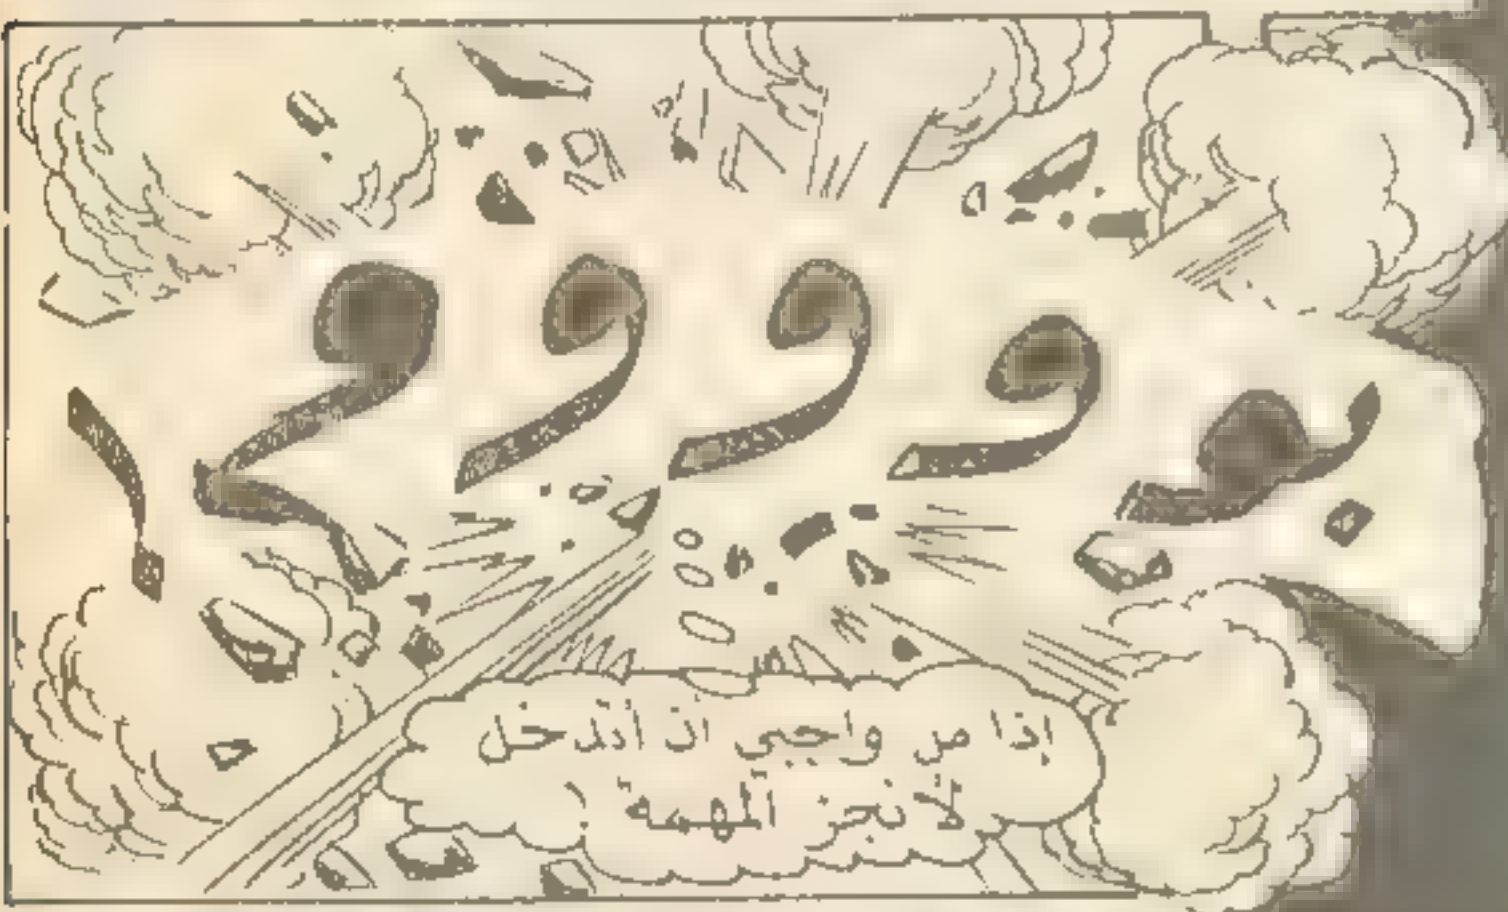 بووووم !
إذا من واجبي ان أتدخل
لأنجز المهمة !